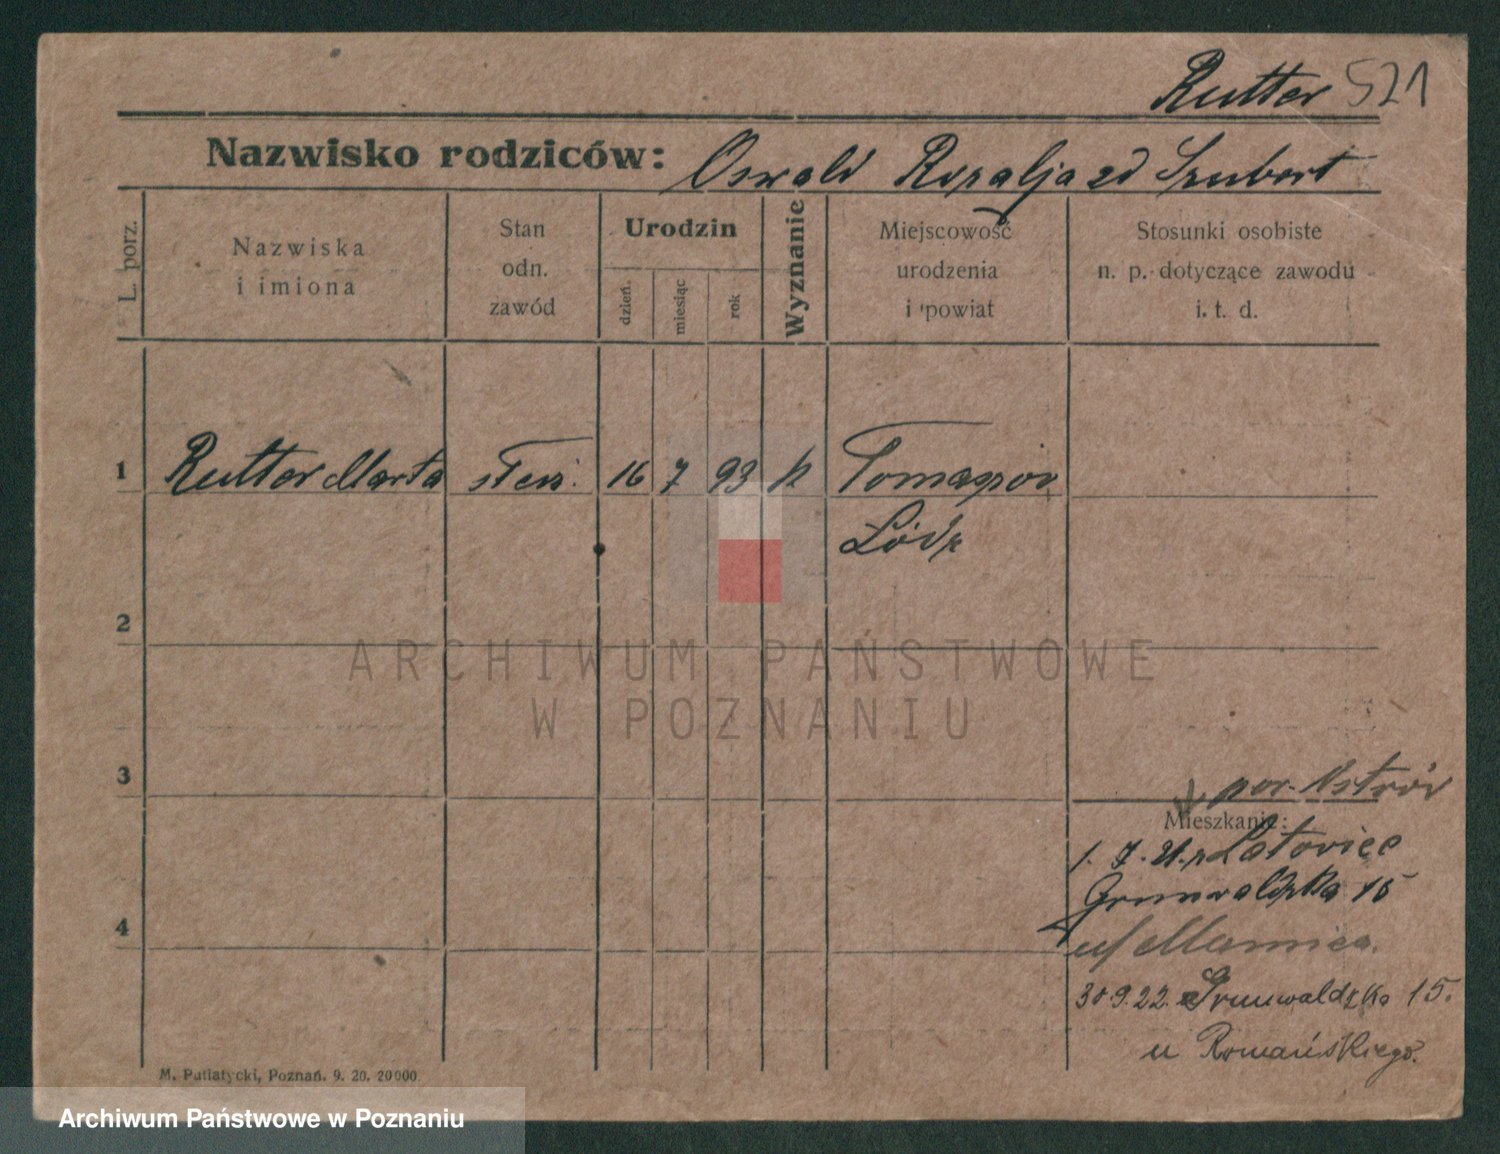 Rutter 521
Nazwisko rodziców: Oswald Rozalja zd Szubert
L. porz.
Nazwiska i imiona
Stan odn. zawód
Urodzin
dzień.
miesiąc
rok
Wyznanie
Miejscowość urodzenia i powiat
Stosunki osobiste n. p. dotyczące zawodu i. t. d.
1 Rutter Marta 16 7 93 Tomaszów
Łódz
2
3
4
Mieszkanie:
1. 7. 21. z Latowice
Grunwaldzka 15
30.9.22. Grunwaldzka 15.
u Romańskiego.
M. Putiatycki, Poznań. 9. 20. 20000.
ARCHIWUM PAŃSTWOWE
W POZNANIU
Archiwum Państwowe w Poznaniu